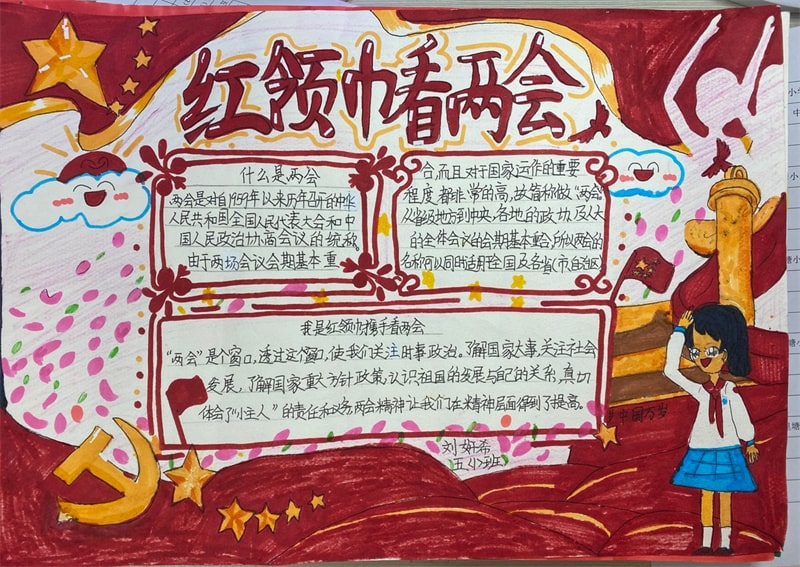 红领巾看两会
什么是两会
两会是对自1959年以来历年召开的中华
人民共和国全国人民代表大会和中
国人民政治协商会议的统称
由于两场会议会期基本重
合,而且对于国家运作的重要
程度都非常的高,故简称做“两会”
从省级地方到中央,各地的政协及人大
的全体会议的会期基本重合所以两会的
名称可以同时适用于全国及各省(市,自治区)
我是红领巾携手看两会
“两会”是个窗口,透过这个窗口,使我们关注时事政治。了解国家大事关注社会
发展,了解国家重大方针政策,认识祖国的发展与自己的关系,真切
体会了“小主人”的责任和义务,两会精神让我们在精神层面得到了提高。
中国万岁
刘妍希